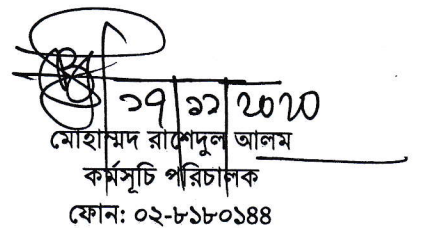 ১৭ ১১ ২০২০
মোহাম্মদ রাশেদুল আলম
কর্মসূচি পরিচালক
ফোন: ০২-৮১৮০১৪৪